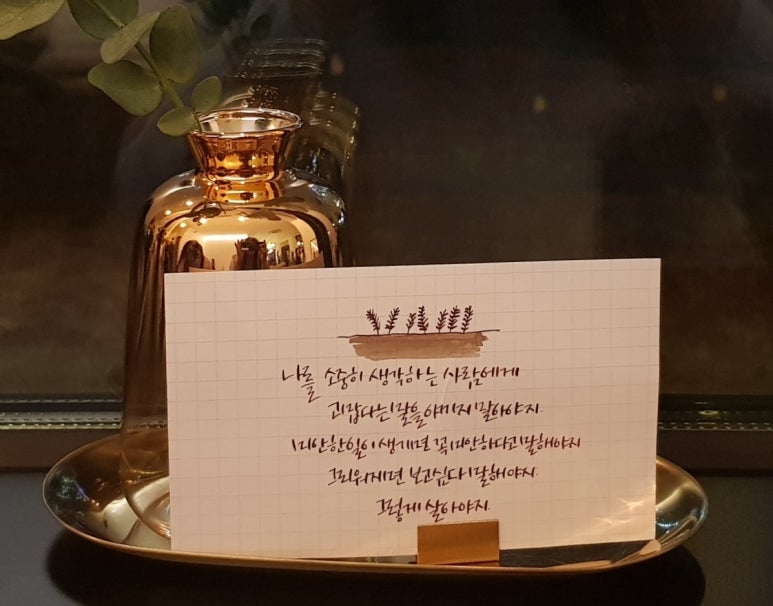 나를 소중히 생각하는 사람에게
고맙다는 말을 아끼지 말아야지.
미안한 일이 생기면 꼭 미안하다고 말해야지
그리워지면 보고싶다 말해야지.
그렇게 살아야지.